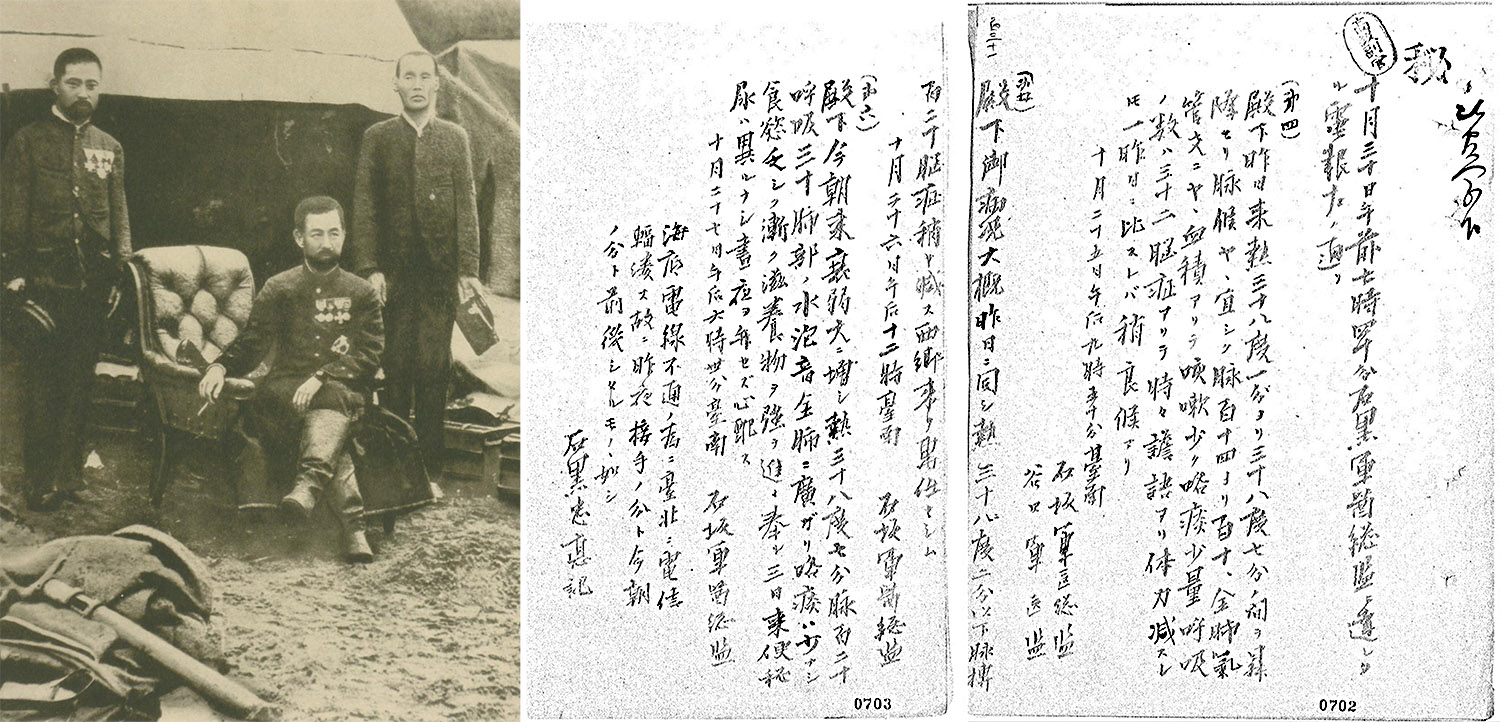 秘
十月三十日午前七時四十分石黒軍醫総監ニ達シタ
ル電報左ノ通リ
(第四)
殿下昨日来熱三十八度一分ヨリ三十八度七分ノ間ヲ昇
降セリ脉候ヤヽ宜シク脉百十四ヨリ百十、全肺氣
管支ニヤヽ血積アリテ咳嗽少ク喀痰少量呼吸
ノ数ハ三十二脳症アリテ時々譫語アリ体力減スレ
ドモ一昨日ニ比スレバ稍良候アリ
十月二十五日午后九時五十分臺南
石坂軍医総監
谷口軍医監
(第五)
殿下御病況大概昨日ニ同シ熱三十八度二分以下脉搏
0702
百二十脳症稍々減ス西郷来リ
十月二十六日午后十二時臺南
石坂軍醫総監
(第六)
殿下今朝来衰弱大ニ増シ熱三十八度七分脉百二十
呼吸三十肺部ノ水泡音全肺ニ廣ガリ喀痰ハ少ナシ
食慾乏シク漸ク滋養物ヲ強ヒ進メ奉ル三日来便秘
尿ハ異ルナシ晝夜ヲ弁セズ心配ス
十月二十七日午后六時丗分臺南
石坂軍醫総監
海底電線不通ノ為ニ臺北ニ電信
輻湊ス故ニ昨夜接手ノ分ト今朝
ノ分ト前後シタルモノヽ如シ
石黒忠悳記
0703